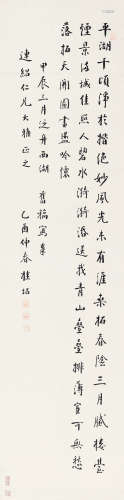 平湖十頃淨於揩絕妙風光未有涯桑柘春陰三月膩楼臺
煙景滿城佳無人碧水漪漪落送我青山疊疊排薄宦可無愁
落拓天開圖畫盪吟懷
甲辰三月泛舟西湖 舊稿寫奉
連紹仁兄大雅正之 乙酉仲春